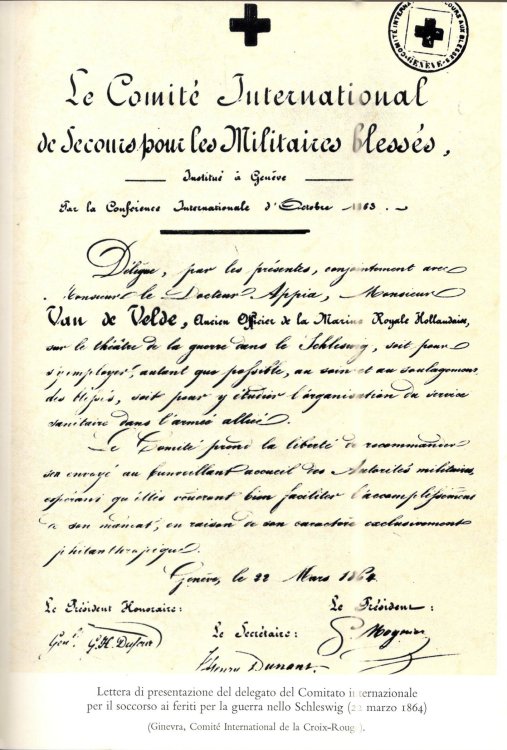 COMITÉ INTERNATIONAL SECOURS AUX BLESSÉS
GENÈVE
Le Comité International
de Secours pour les Militaires blessés,
Institué à Genève
Par la Conférence Internationale d'Octobre 1863.
Délègue, par les présentes, conjointement avec
Monsieur le Docteur Appia, Monsieur
Van de Velde, Ancien Officier de la Marine Royale Hollandaise,
sur le théâtre de la guerre dans le Schleswig, soit pour
s'employer, autant que possible, au soin et au soulagement
des blessés, soit pour y étudier l'organisation du service
sanitaire dans l'armée alliée.
Le Comité prend la liberté de recommander
son envoyé au bienveillant accueil des Autorités militaires,
espérant qu'elles voudront bien faciliter l'accomplissement
de son mandat, en raison de son caractère exclusivement
philanthropique.
Genève, le 22 Mars 1864
Le Président Honoraire: Le Président:
Le Secrétaire:
Genl. G. H. Dufour G. Moynier
Henry Dunant
Lettera di presentazione del delegato del Comitato internazionale
per il soccorso ai feriti per la guerra nello Schleswig (22 marzo 1864)
(Ginevra, Comité International de la Croix-Rouge).